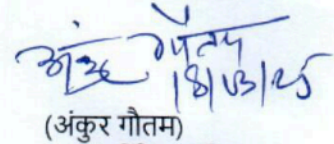 अंकुर गौतम
18/03/25
(अंकुर गौतम)